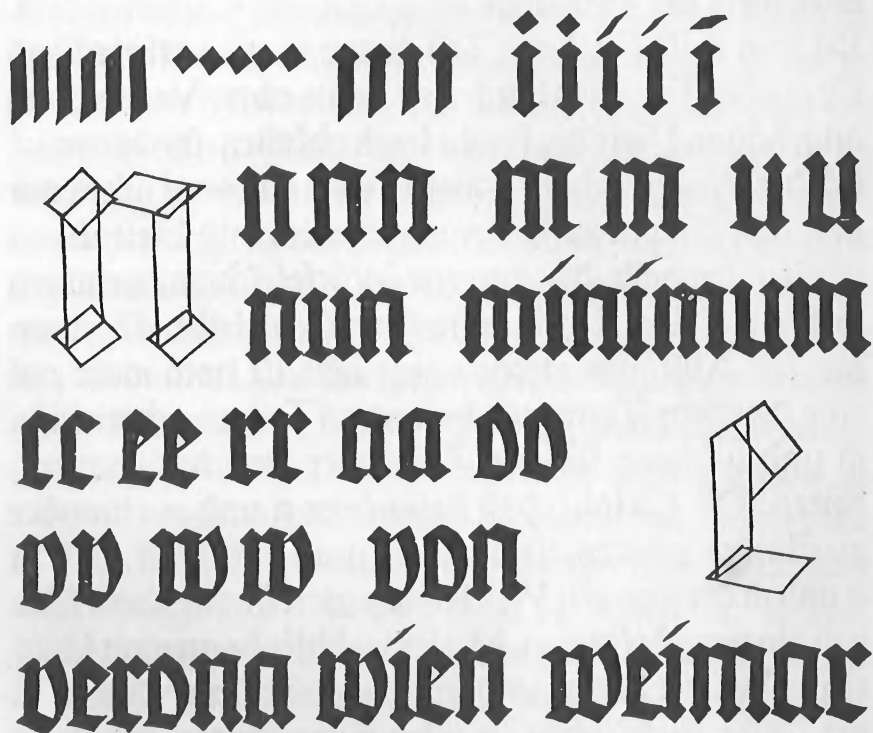 iiiii
nnn mm uu
nun minimum
cc ee rr aa oo
vv ww von
verona wien weimar